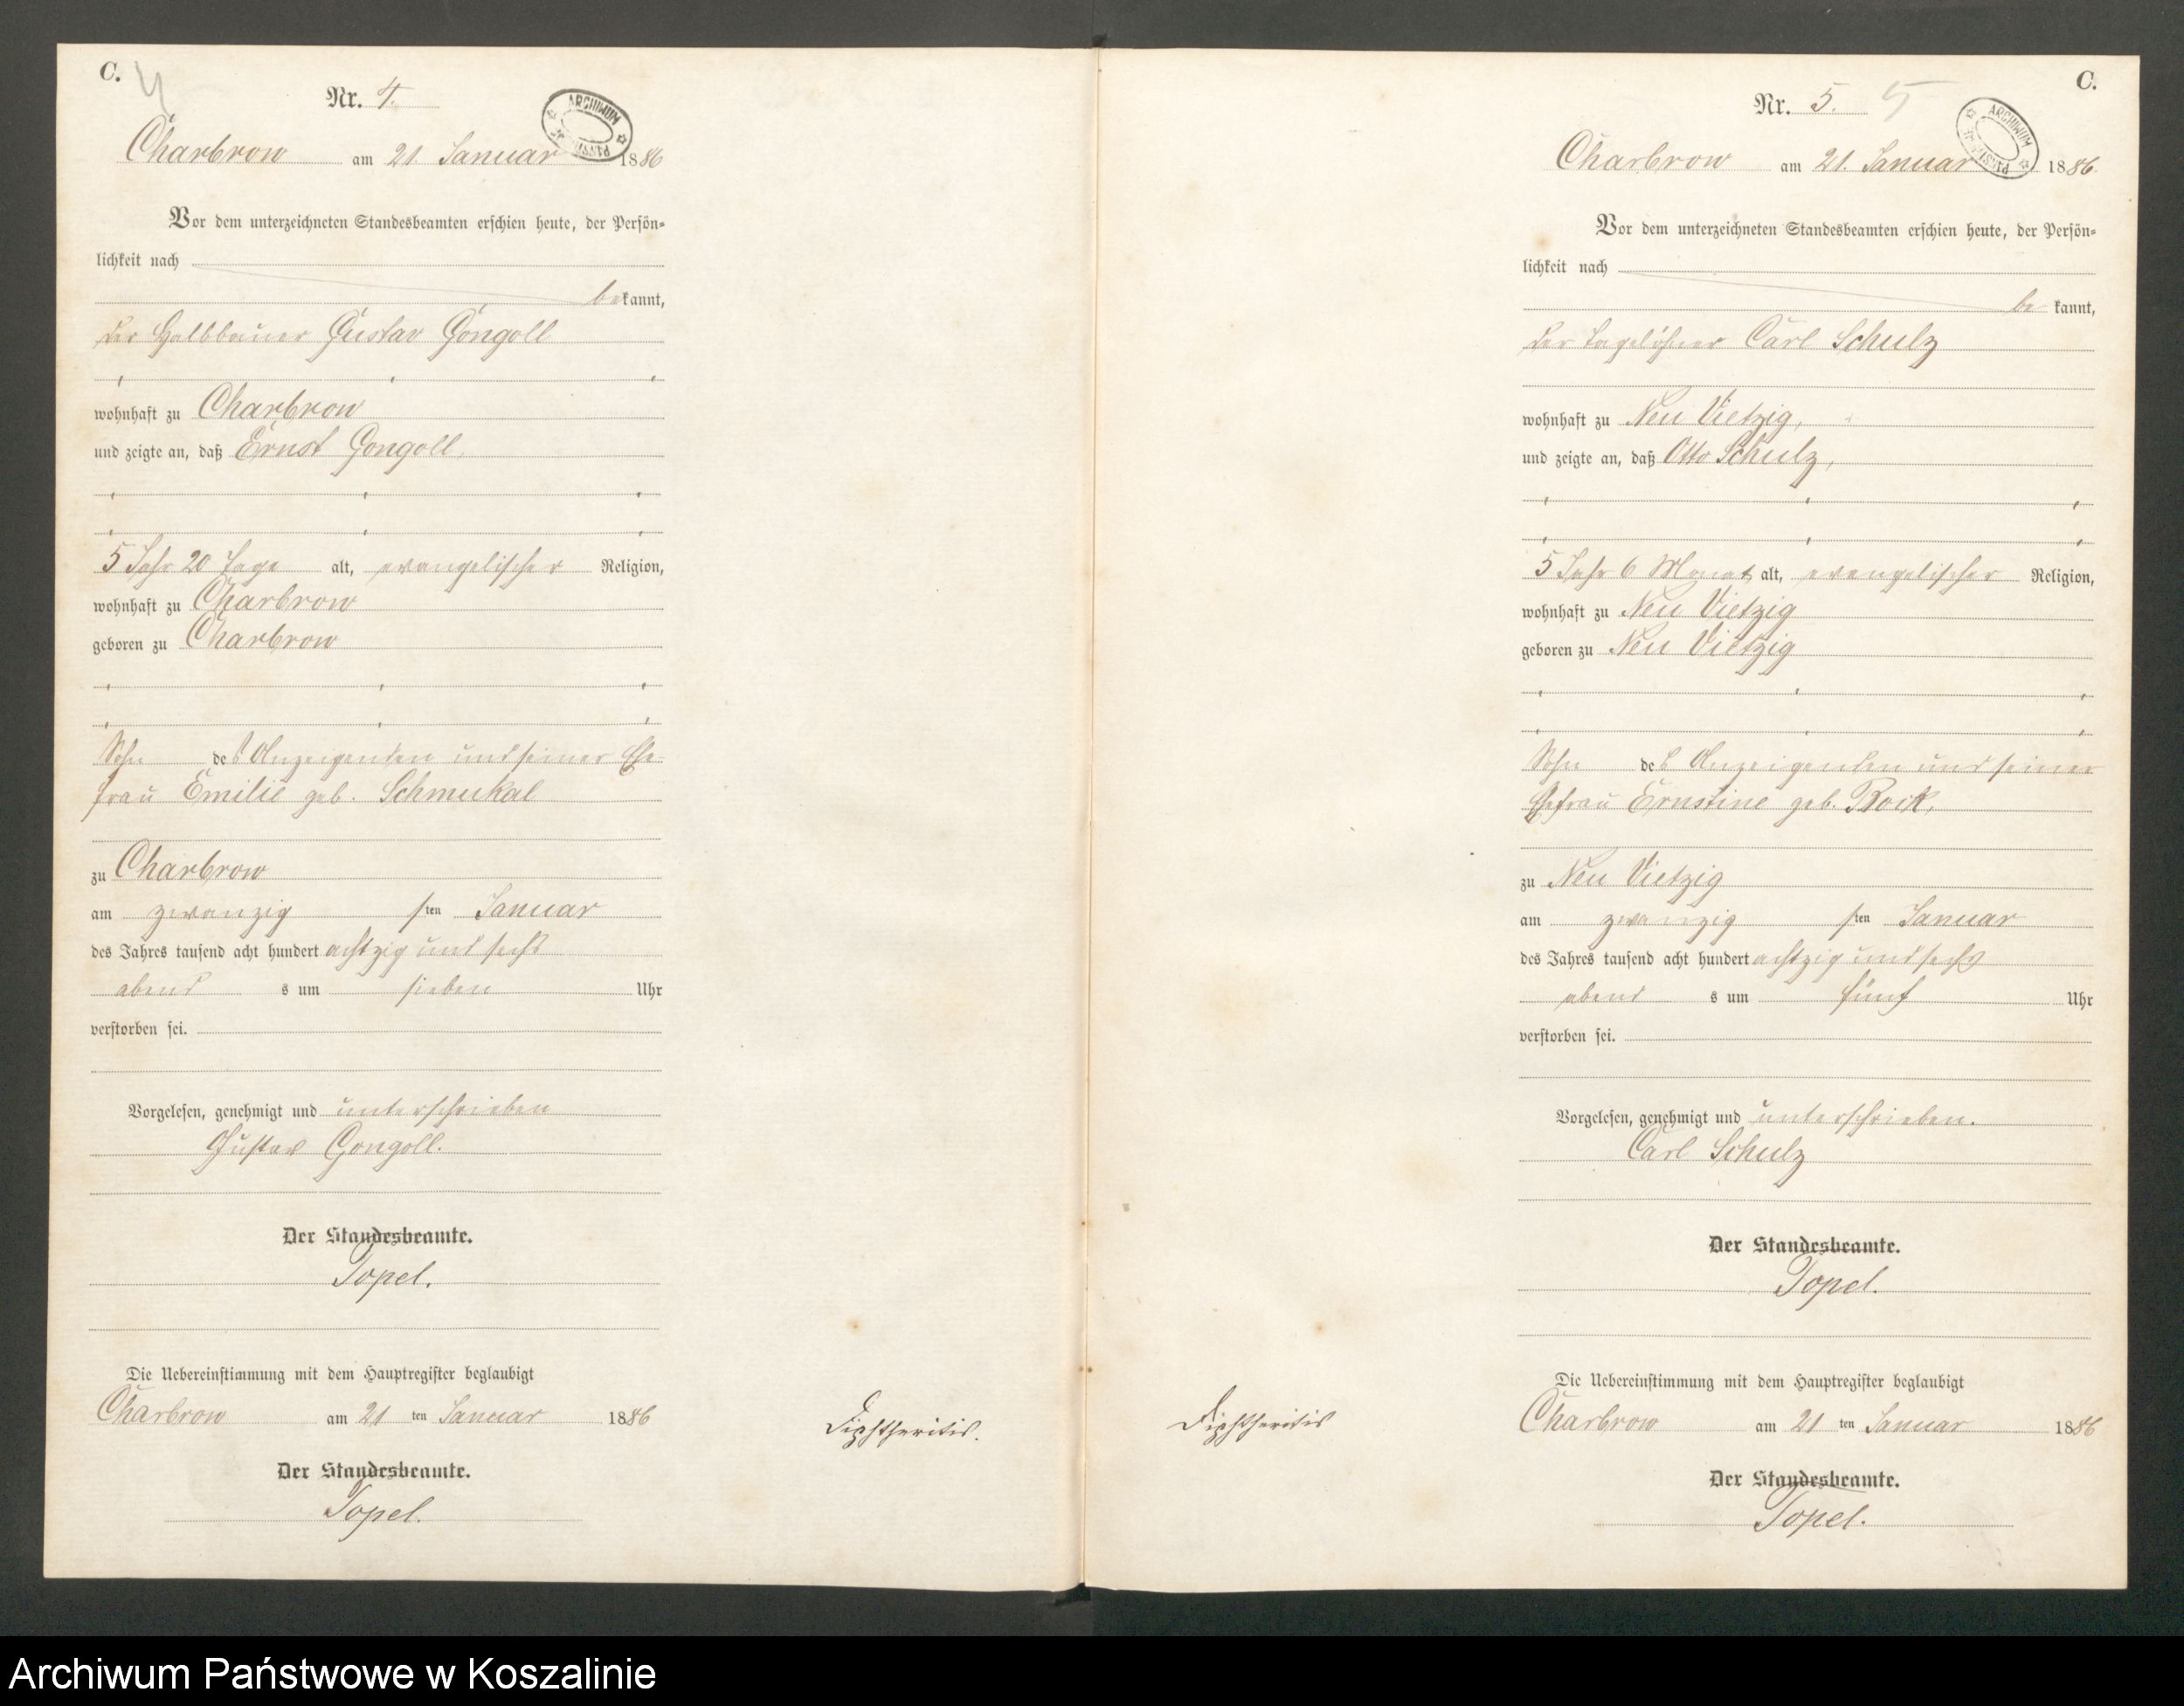 C.
4
Nr. 4.
ARCHIWUM
Charbrow am 21. Januar 1886
Vor dem unterzeichneten Standesbeamten erschien heute, der Persön-
lichkeit nach
bekannt,
der Halbbauer Gustav Gongoll
wohnhaft zu Charbrow
und zeigte an, daß Ernst Gongoll,
5 Jahr 20 Tage alt, evangelischer Religion,
wohnhaft zu Charbrow
geboren zu Charbrow
Sohn des Anzeigenden und seiner Ehe-
frau Emilie geb. Schmukal
zu Charbrow
am zwanzigsten Januar
des Jahres tausend acht hundert achtzig und sechs
abends um sieben Uhr
verstorben sei.
Vorgelesen, genehmigt und unterschrieben
Gustav Gongoll.
Der Standesbeamte.
Topel.
Die Uebereinstimmung mit dem Hauptregister beglaubigt
Charbrow am 21ten Januar 1886
Der Standesbeamte.
Topel.
Diphtheritis.
C.
Nr. 5. 5
ARCHIWUM
Charbrow am 21. Januar 1886.
Vor dem unterzeichneten Standesbeamten erschien heute, der Persön-
lichkeit nach
bekannt,
der Tagelöhner Carl Schulz
wohnhaft zu Neu Vietzig,
und zeigte an, daß Otto Schulz,
5 Jahr 6 Monat alt, evangelischer Religion,
wohnhaft zu Neu Vietzig
geboren zu Neu Vietzig
Sohn des Anzeigenden und seiner
Ehefrau Ernstine geb. Rock,
zu Neu Vietzig
am zwanzigsten Januar
des Jahres tausend acht hundert achtzig und sechs
abends um fünf Uhr
verstorben sei.
Vorgelesen, genehmigt und unterschrieben.
Carl Schulz
Der Standesbeamte.
Topel.
Die Uebereinstimmung mit dem Hauptregister beglaubigt
Charbrow am 21ten Januar 1886
Der Standesbeamte.
Topel.
Diphtheritis
Archiwum Państwowe w Koszalinie